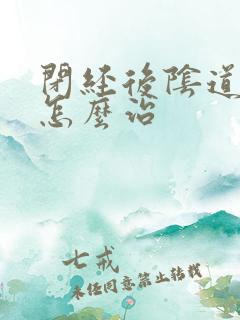 閉経後陰道
怎麼治
七戒
未经同意禁止转载